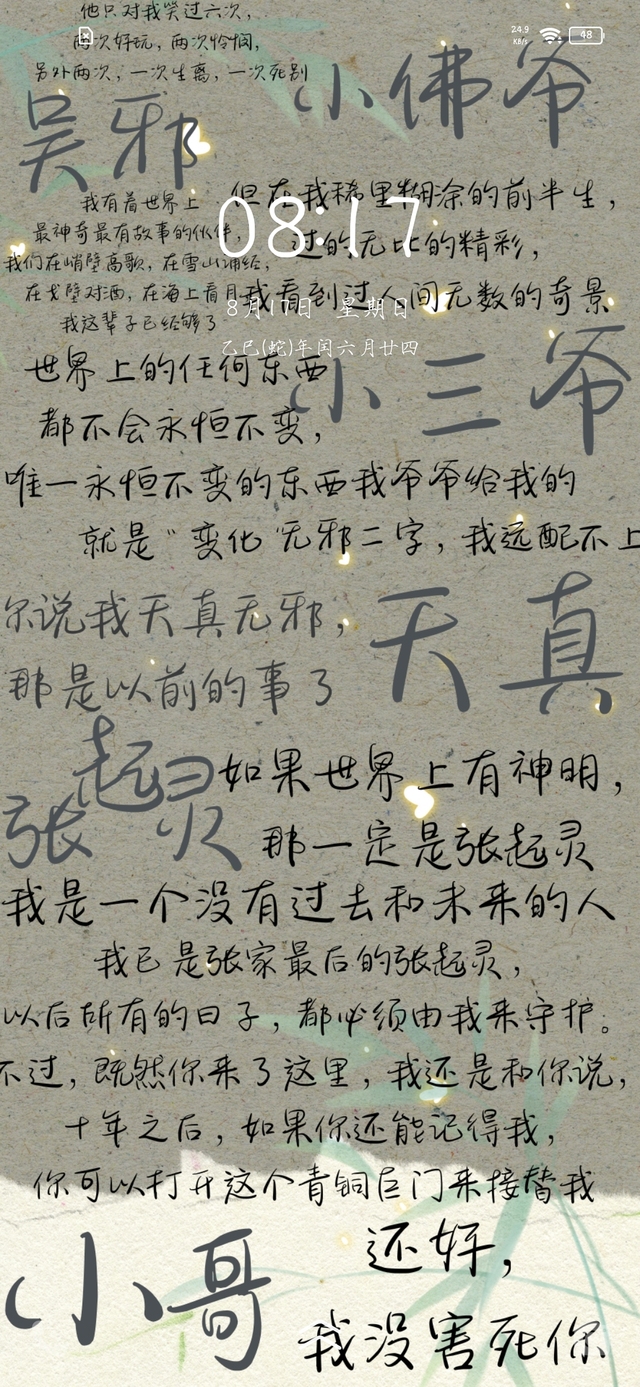 他只对我笑过六次，
两次好玩，两次怜悯，
另外两次，一次生离，一次死别
24.9
KB/s
48
吴邪
小佛爷
我有着世界上
最神奇最有故事的伙伴，
我们在峭壁高歌，在雪山诵经，
在戈壁对酒，在海上看月
我这辈子已经够了
但在我稀里糊涂的前半生，
过的无比的精彩，
我看到过人间无数的奇景
08:17
8月17日 星期日
乙巳(蛇)年闰六月廿四
世界上的任何东西
都不会永恒不变，
小三爷
唯一永恒不变的东西我爷爷给我的
就是“变化”无邪二字，我远配不上
你说我天真无邪，
那是以前的事了
天真
张起灵
如果世界上有神明，
那一定是张起灵
我是一个没有过去和未来的人
我已是张家最后的张起灵，
以后所有的日子，都必须由我来守护。
不过，既然你来了这里，我还是和你说，
十年之后，如果你还能记得我，
你可以打开这个青铜巨门来接替我
小哥
还好，
我没害死你